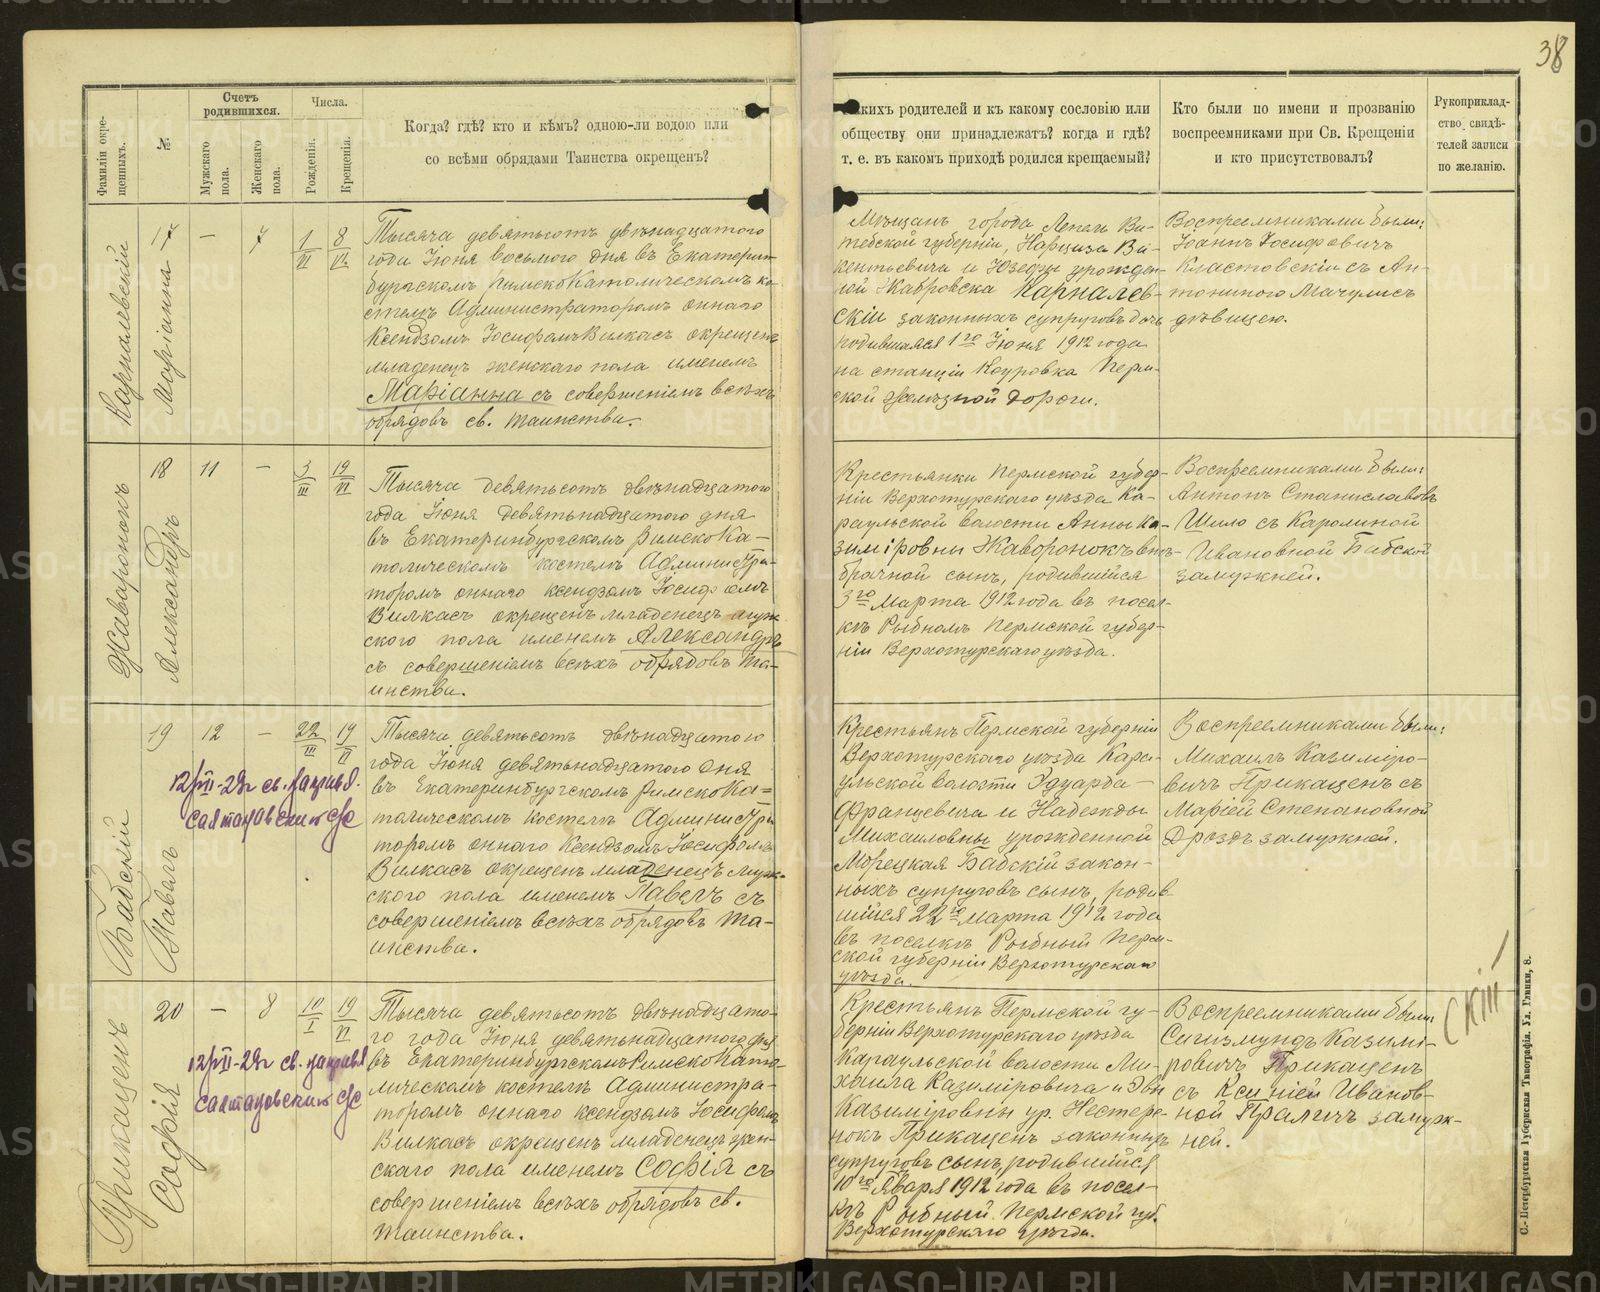 38
Фамиліи окре-
щенныхъ.
№
Счетъ
родившихся.
Мужскаго
пола.
Женскаго
пола.
Числа.
Рожденія.
Крещенія.
Когда? гдѣ? кто и кѣмъ? одною-ли водою или
со всѣми обрядами Таинства окрещенъ?
какихъ родителей и къ какому сословію или
обществу они принадлежатъ? когда и гдѣ?
т. е. въ какомъ приходѣ родился крещаемый?
Кто были по имени и прозванію
воспреемниками при Св. Крещеніи
и кто присутствовалъ?
Рукоприклад-
ство свидѣ-
телей записи
по желанію.
Карналевскій
Маріанна
17
—
7
1/VI
8/VI
Тысяча девятьсотъ двѣнадцатого
года Іюня восьмого дня въ Екатерин-
бургскомъ РимскоКатолическомъ ко-
стелѣ Администраторомъ оннаго
Ксендзомъ Іосифомъ Вилкасъ окрещенъ
младенецъ женскаго пола именемъ
Маріанна съ совершеніемъ всѣхъ
обрядовъ св. таинства.
Мѣщанъ города Лепеля Ви-
тебской губерніи, Нарциза Ви-
кентьевича и Юзефы урожден-
ной Жабровска Карналев-
скій законныхъ супруговъ дочь
родившаяся 1го Іюня 1912 года
на станціи Коуровка Перм-
ской желѣзной дороги.
Воспреемниками были:
Іоаннъ Іосифовичъ
Кластовскій съ Ан-
тониною Мачулисъ
дѣвицею.
Жаворонокъ
Александръ
18
11
—
3/III
19/VI
Тысяча девятьсотъ двѣнадцатого
года Іюня девятьнадцатого дня
въ Екатеринбургскомъ РимскоКа-
толическомъ костелѣ Администра-
торомъ оннаго ксендзомъ Іосифомъ
Вилкасъ окрещенъ младенецъ муж-
ского пола именемъ Александръ
съ совершеніемъ всѣхъ обрядовъ та-
инства.
Крестьянки Пермской губер-
ніи Верхотурскаго уѣзда Ка-
раульской волости Анны Ка-
зиміровны Жаворонокъ внѣ-
брачной сынъ, родившійся
3го Марта 1912 года въ посел-
кѣ Рыбномъ Пермской губер-
ніи Верхотурскаго уѣзда.
Воспреемниками были:
Антонъ Станиславовъ
Шило съ Каролиной
Ивановной Бабской
замужней.
Бабскій
Павелъ
19
12
—
22/III
19/VI
12/VII-29г св.
Салтановский с/с
Тысяча девятьсотъ двѣнадцатого
года Іюня девятьнадцатого дня
въ Екатеринбургскомъ РимскоКа-
толическомъ костелѣ Администра
торомъ оннаго Ксендзомъ Іосифомъ
Вилкасъ окрещенъ младенецъ муж-
ского пола именемъ Павелъ съ
совершеніемъ всѣхъ обрядовъ та-
инства.
Крестьянъ Пермской губерніи
Верхотурскаго уѣзда Кара-
ульской волости Эдуарда
Францевича и Надежды
Михаиловны урожденной
Морецкая Бабскій закон-
ныхъ супруговъ сынъ, родив
шійся 22го марта 1912 года
въ поселкѣ Рыбный Перм-
ской губерніи Верхотурскаго
уѣзда.
Воспреемниками были:
Михаилъ Казиміро-
вичъ Прикащенъ съ
Маріей Степановной
Дроздъ замужней.
Прикащенъ
Софія
20
—
8
10/I
19/VI
12/VII-29г св.
Салтановский с/с
Тысяча девятьсотъ двѣнадцато-
го года Іюня девятьнадцатого дня
въ Екатеринбургскомъ РимскоКато-
лическомъ костелѣ Администра-
торомъ оннаго ксендзомъ Іосифомъ
Вилкасъ окрещенъ младенецъ жен-
скаго пола именемъ Софія съ
совершеніемъ всѣхъ обрядовъ св.
таинства.
Крестьянъ Пермской гу-
берніи Верхотурскаго уѣзда
Караульской волости Ми-
хаила Казиміровича и Эвы
Казиміровны ур. Нестере-
нокъ Прикащенъ законныхъ
супруговъ сынъ, родившійся
10го Января 1912 года въ посел-
кѣ Рыбный Пермской губ.
Верхотурскаго уѣзда.
Воспреемниками были:
Сигизмундъ Казимі-
ровичъ Прикащенъ
съ Ксеніей Иванов-
ной Праличъ замуж-
ней.
скій
С.-Петербургская Губернская Типографія. Ул. Глинки, 8.
METRIKI.GASO-URAL.RU